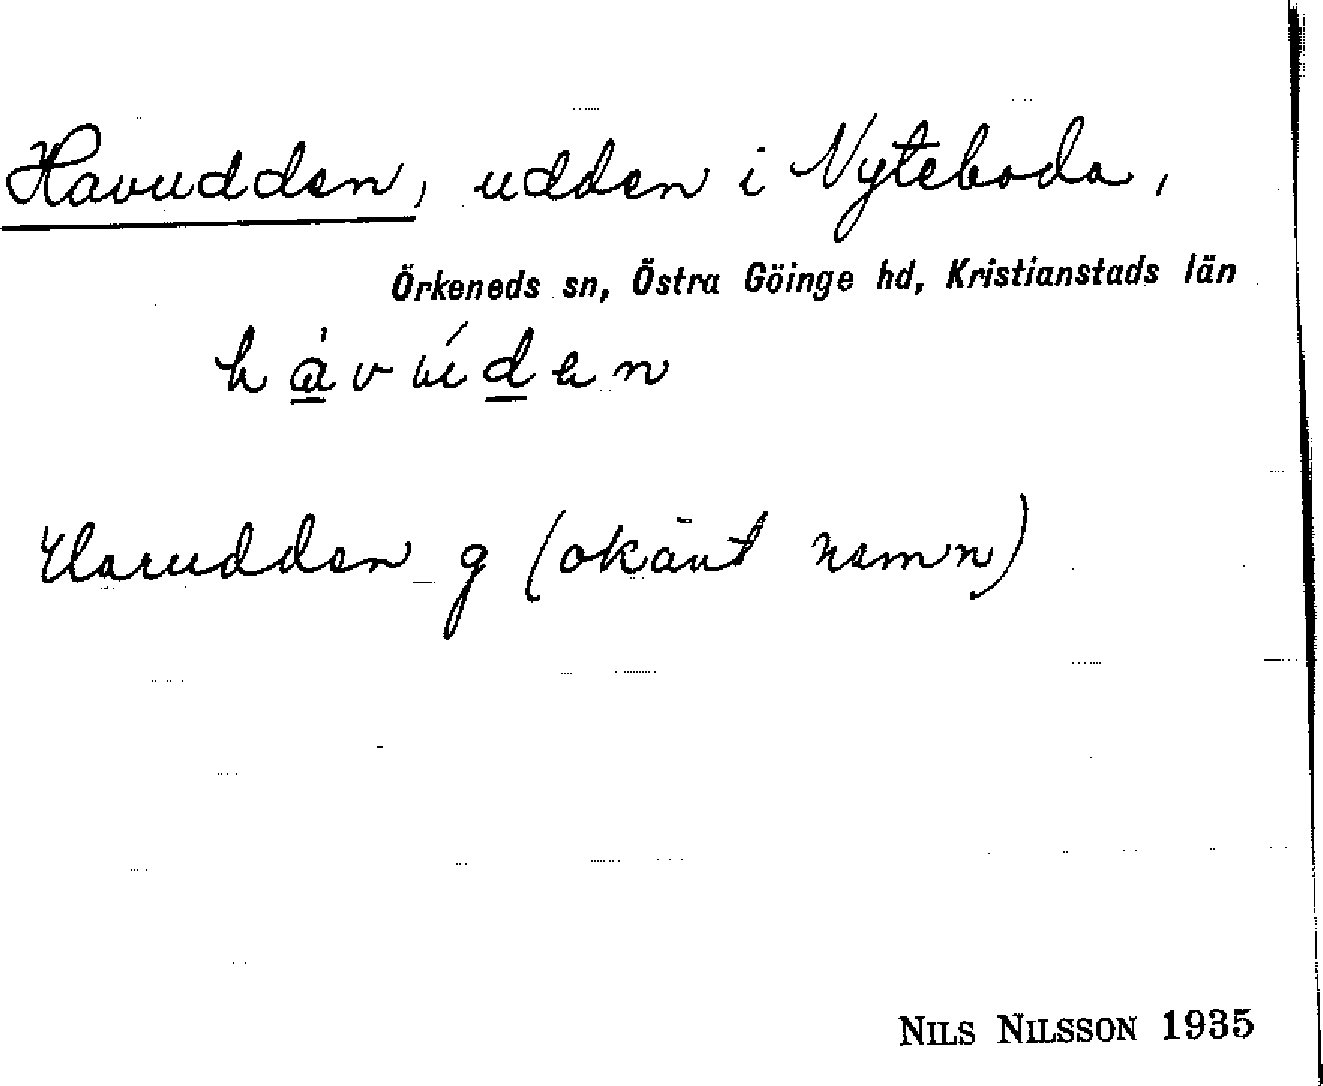 Havudden, udden i Nyteboda,
Örkeneds sn, Östra Göinge hd, Kristianstads län
Harudden g (okänt namn)
NILS NILSSON 1935